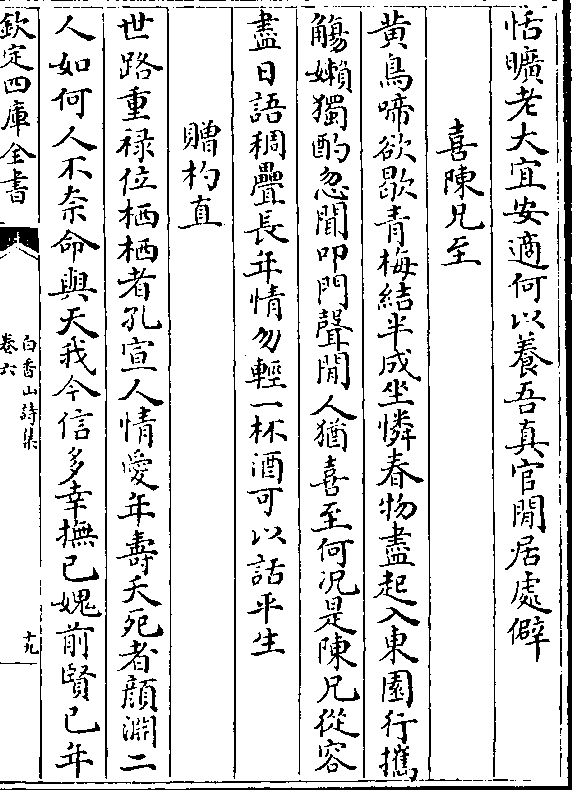 恬曠老大宜安適何以養吾真官閒居處僻
喜陳兄至
黄鳥啼欲歇青梅結半成坐憐春物盡起入東園行攜
觴嬾獨酌忽聞叩門聲閒人猶喜至何況是陳兄從容
盡日語稠疊長年情勿輕一杯酒可以話平生
贈杓直
世路重禄位栖栖者孔宣人情愛年壽夭死者顔淵二
人如何人不奈命與天我今信多幸撫已媿前賢已年
欽定四庫全書
白香山詩集
卷六
十九